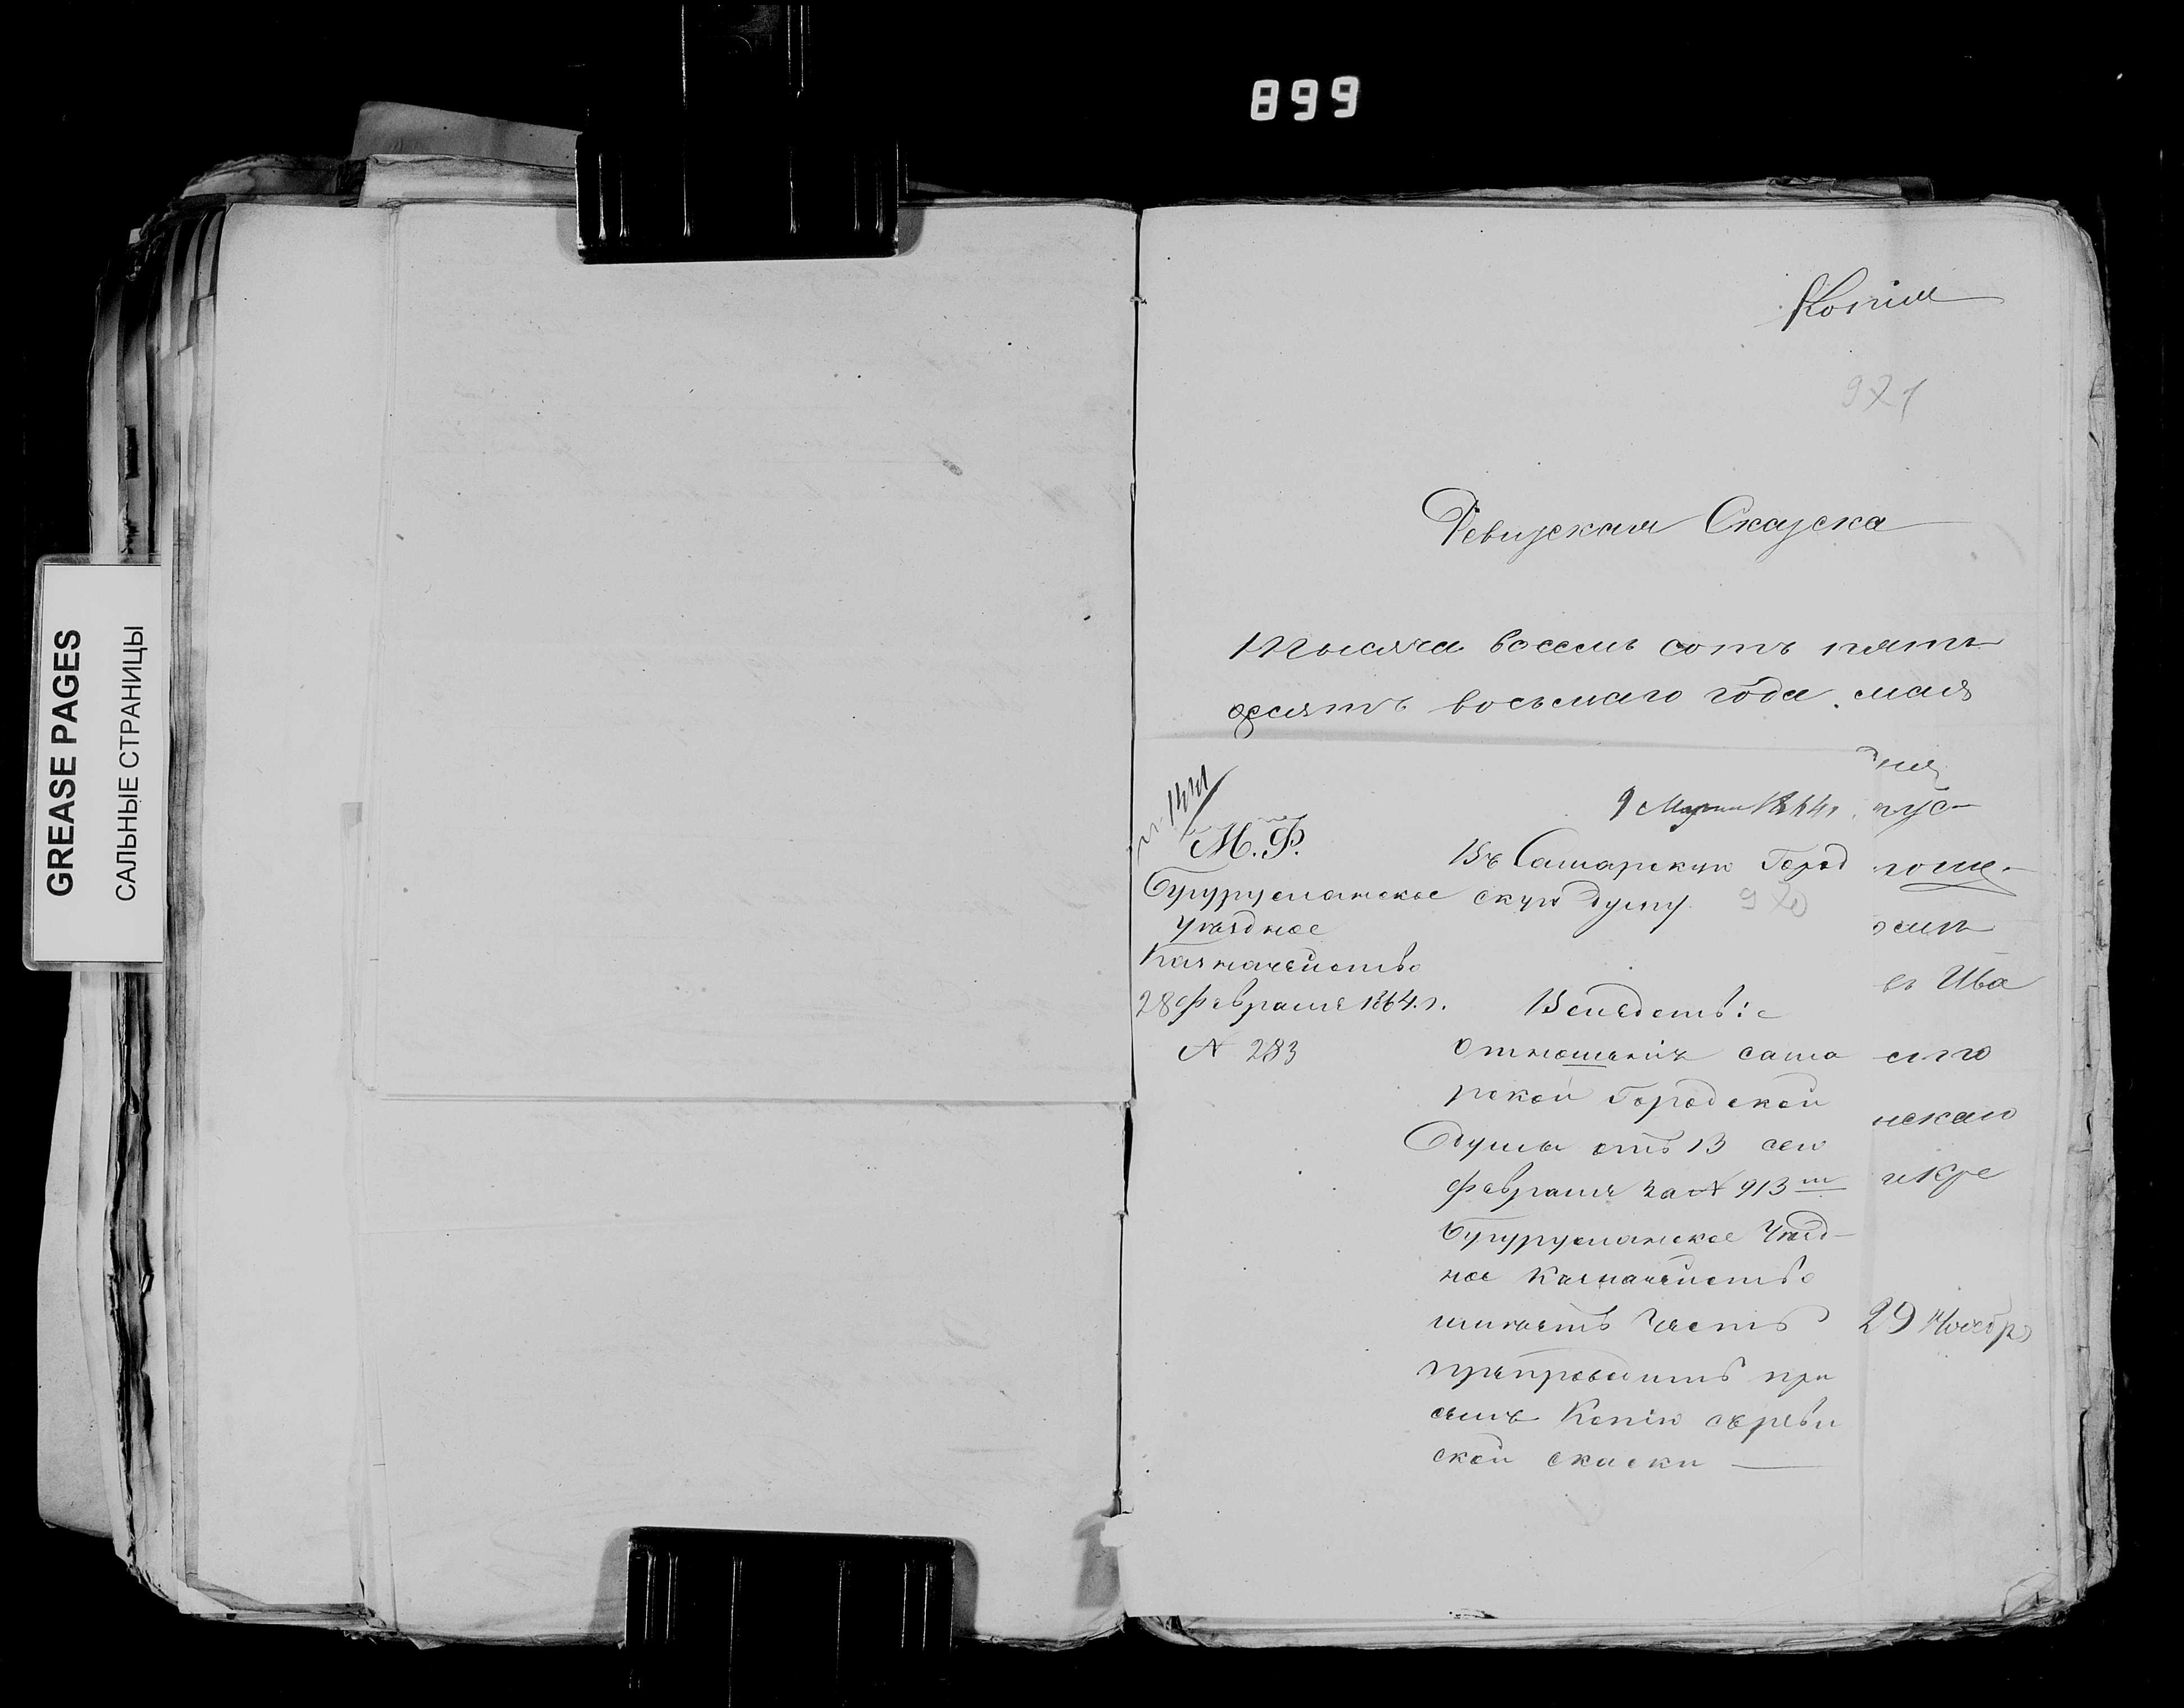 899
GREASE PAGES
САЛЬНЫЕ СТРАНИЦЫ
Копiя
971
Ревизская Сказска
Тысяча восемь сотъ пять
десятъ восьмаго года. мая
дня
9 Марта 1864 г.
М. Ф.
Бугурусланское
Уѣздное
Казначейство
28 Февраля 1864. г.
№ 283
Въ Самарскую Город
скую думу
970
Вслѣдствiе
отношенiя сама
рской Городской
Думы отъ 13 сего
Февраля за № 913 м
Бугурусланское Уѣзд-
ное Казначейство
имѣетъ честь
препроводить при
семъ Копiю съ реви
ской скаски
пус-
въ Ива
его
нскаго
29 Ноябр